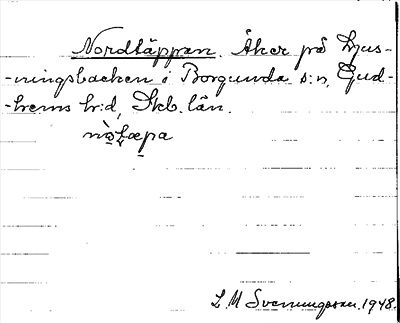 Nordtäppan. Åker på Ljus-
-ningsbacken i Borgunda s:n, Gud-
-hems h:d, Skb. län.
L M Svenungsson. 1948.